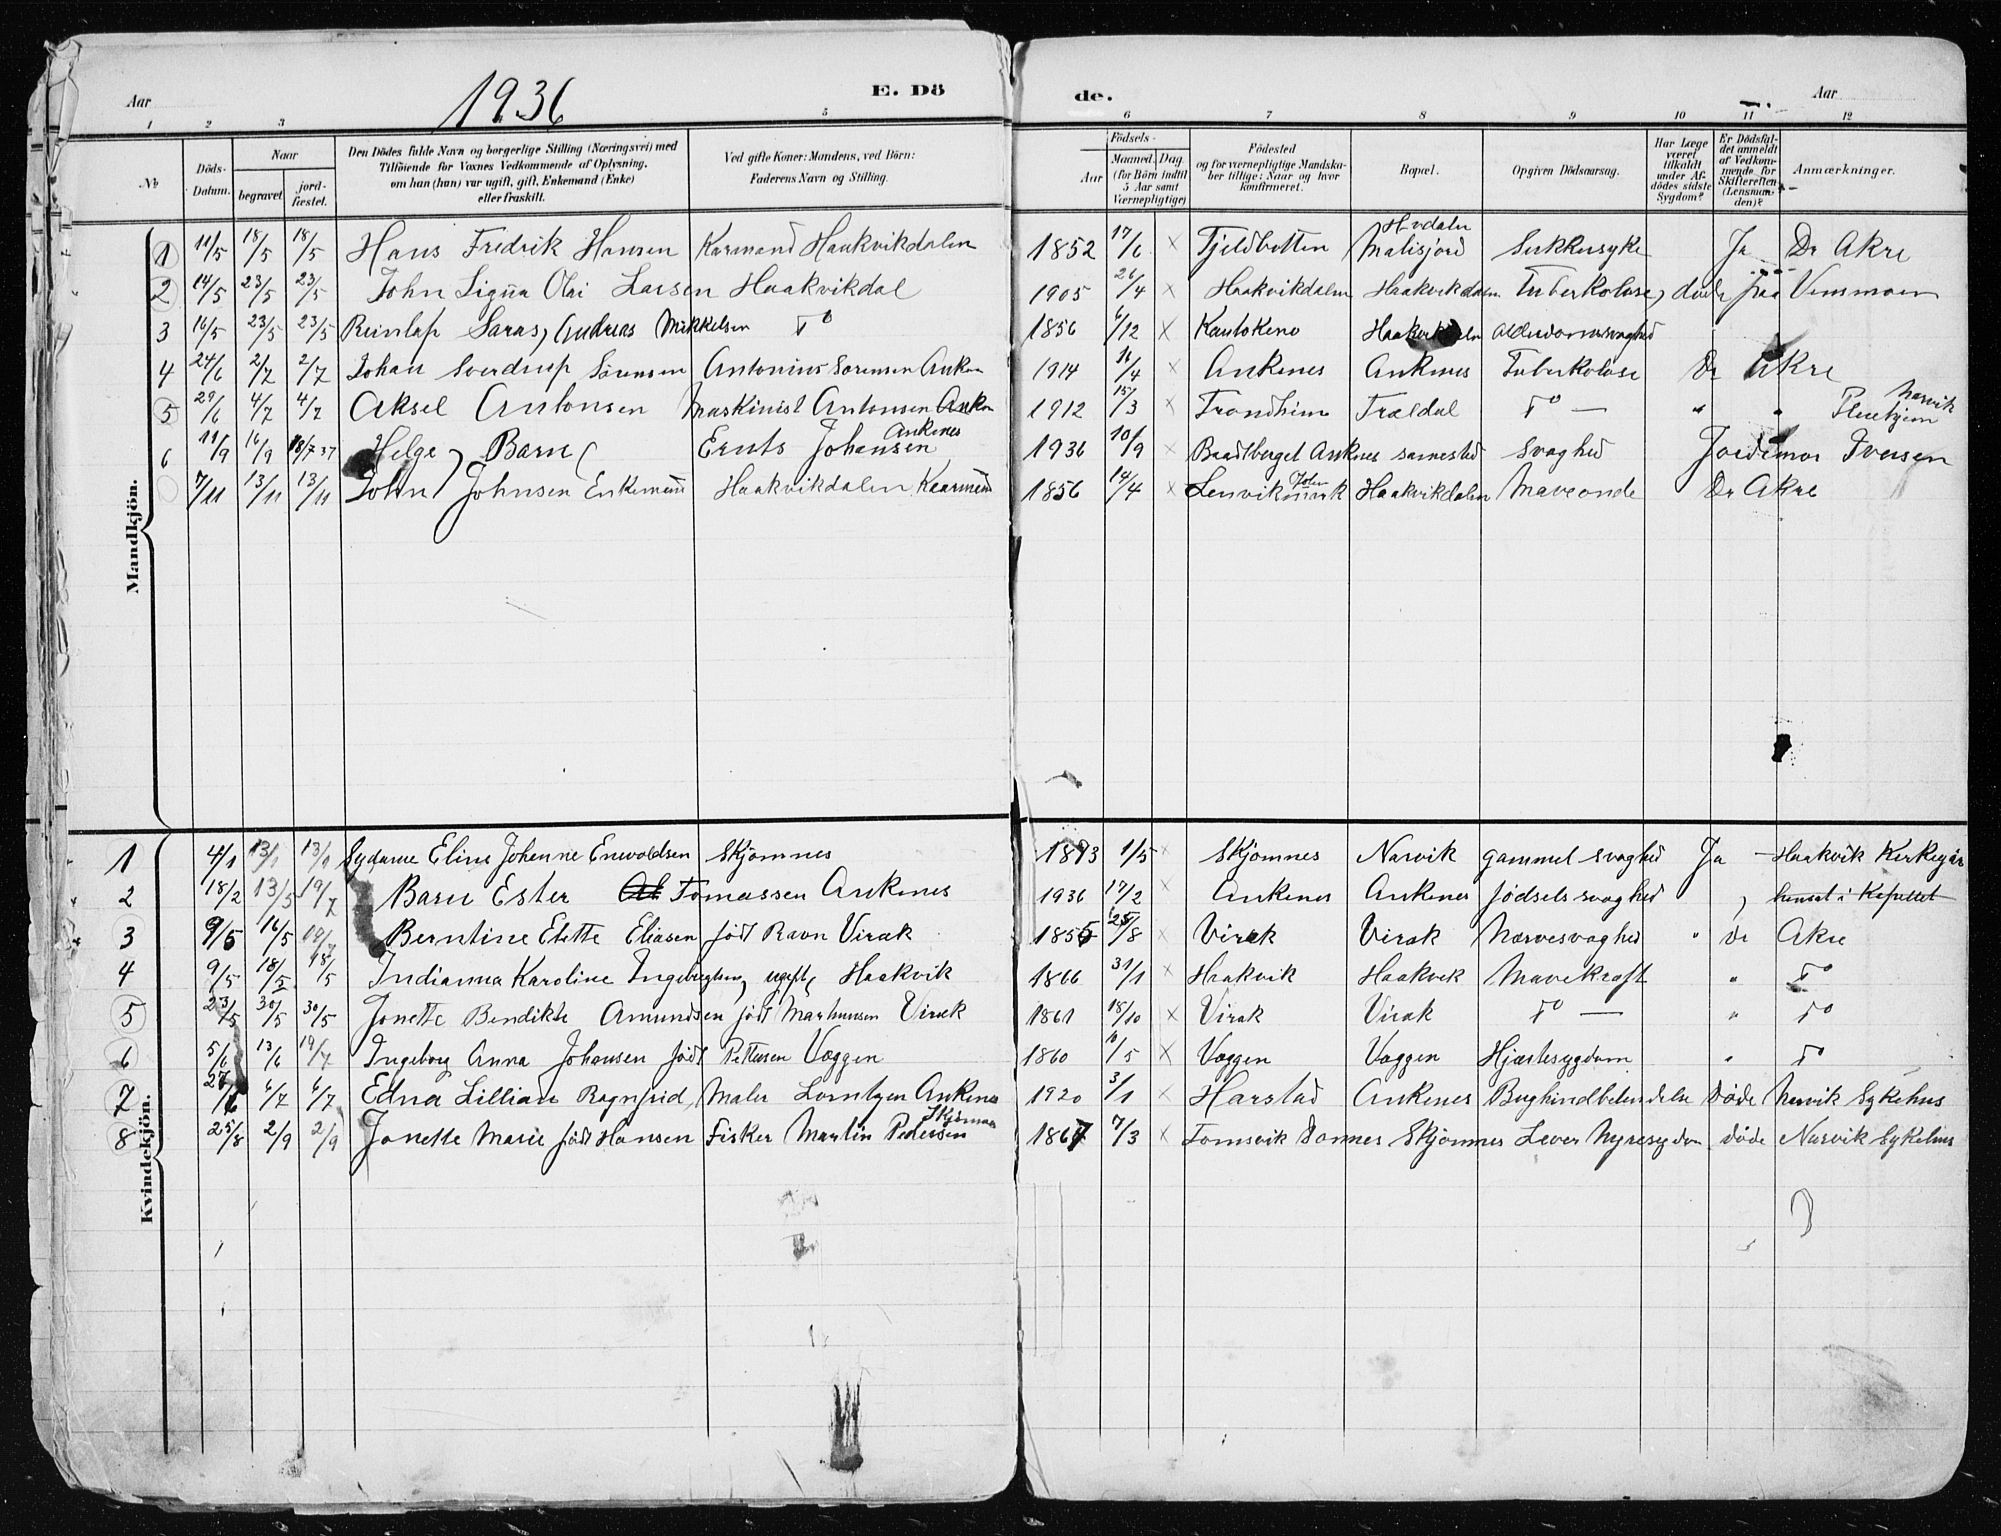 Aar
1936
E. Dö
de.
Aar
1 2 3 5 6 7 8 9 10 11 12
No
Döds-Datum.
Naar
begravet
jord-fæstet.
Den Dödes fulde Navn og borgerlige Stilling (Næringsvei) med
Tilföiende for Voxnes Vedkommende af Oplysning,
om han (hun) var ugift, gift, Enkemand (Enke)
eller fraskilt.
Ved gifte Koner: Mandens, ved Börn:
Faderens Navn og Stilling.
Födsels-
Aar
Maaned. Dag
(for Börn indtil
5 Aar samt
Værnepligtige)
Födested
og for værnepligtige Mandska-
ber tillige: Naar og hvor
konfirmeret.
Bopæl.
Opgiven Dödsaarsag.
Har Læge
været
tilkaldt
under Af-
dödes sidste
Sygdom?
Er Dödsfal-
det anmeldt
af Vedkom-
mende for
Skifteretten
(Lensman-
den)?
Anmærkninger.
Mandkjön.
1 11/5 18/5 18/5 Hans Fredrik Hansen Kaarmand Haakvikdalen 1852 17/6 × Fjeldbotten Hvdalen Malisjord Sukkersyke Ja Dr Akre
2 14/5 23/5 23/5 John Signa Olai Larsen Haakvikdal 1905 26/4 × Haakvikdalen Haakvikdalen Tuberkolose, døde paa Vensmoen
3 16/5 23/5 23/5 Saras, Andreas Mikkelsen Do 1856 6/12 × Kautokeno Haakvikdalen Alderdomssvaghed
4 24/6 2/7 2/7 Johan Sverdrup Sørensen Antonius Sørensen Anken 1914 16/4 × Ankenes Ankenes Tuberkolose Dr Akre
5 29/6 4/7 4/7 Aksel Antonsen Maskinist Antonsen Anken 1912 15/3 × Trondhim Frældal Do — " " Narvik Pleiehjem
6 11/9 16/9 18/7 37 Helge, Barn Ernts Johansen Ankenes 1936 10/9 × Ankenes samested Svaghed Jordemor Iversen
7/11 13/11 13/11 John Johnsen Enkemann Haakvikdalen Kaarmann 1856 14/4 × Lenvikmark Haakvikdalen Maveonde Dr Akre
Kvindekjön.
1 4/1 13/1 13/1 Eline Johanne Enevoldsen Skjomnes 1873 1/5 × Skjomnes Narvik gammel svaghed Ja — Haakvik Kerkegår
2 18/2 13/5 19/7 Barn Ester Tomassen Ankenes 1936 17/2 × Ankenes Ankenes fødsels svaghed , hensat i Kapellet
3 9/5 16/5 19/7 Berntine Elette Eliasen født Ravn Virak 1855 25/8 × Virak Virak Nervesvaghed " Dr Akre
4 9/5 18/5 18/5 Indianna Karoline Ingebrigtsen, ugift, Haakvik 1866 31/1 × Haakvik Haakvik Mavekræft " Do
5 23/5 30/5 30/5 Jonette Bendikte Amundsen født Markussen Virak 1861 18/10 × Virak Virak Do — " Do
6 5/6 13/6 19/7 Ingeborg Anna Johansen født Pettersen Vaggen 1860 10/5 × Vaggen Vaggen Hjærtesygdom " Do
7 27/6 6/7 6/7 Edna Lillian Ragnfrid, Maler Lorntzen Ankenes 1920 3/1 × Harstad Ankenes Bughindbetendelse Døde Narvik Sykehus
8 25/8 2/9 2/9 Jonette Marie født Hansen Fisker Martin Pedersen Skjomnes 1867 7/3 × Tomsvik Dønnes Skjomnes Lever Nyresygdom Døde Narvik Sykehus